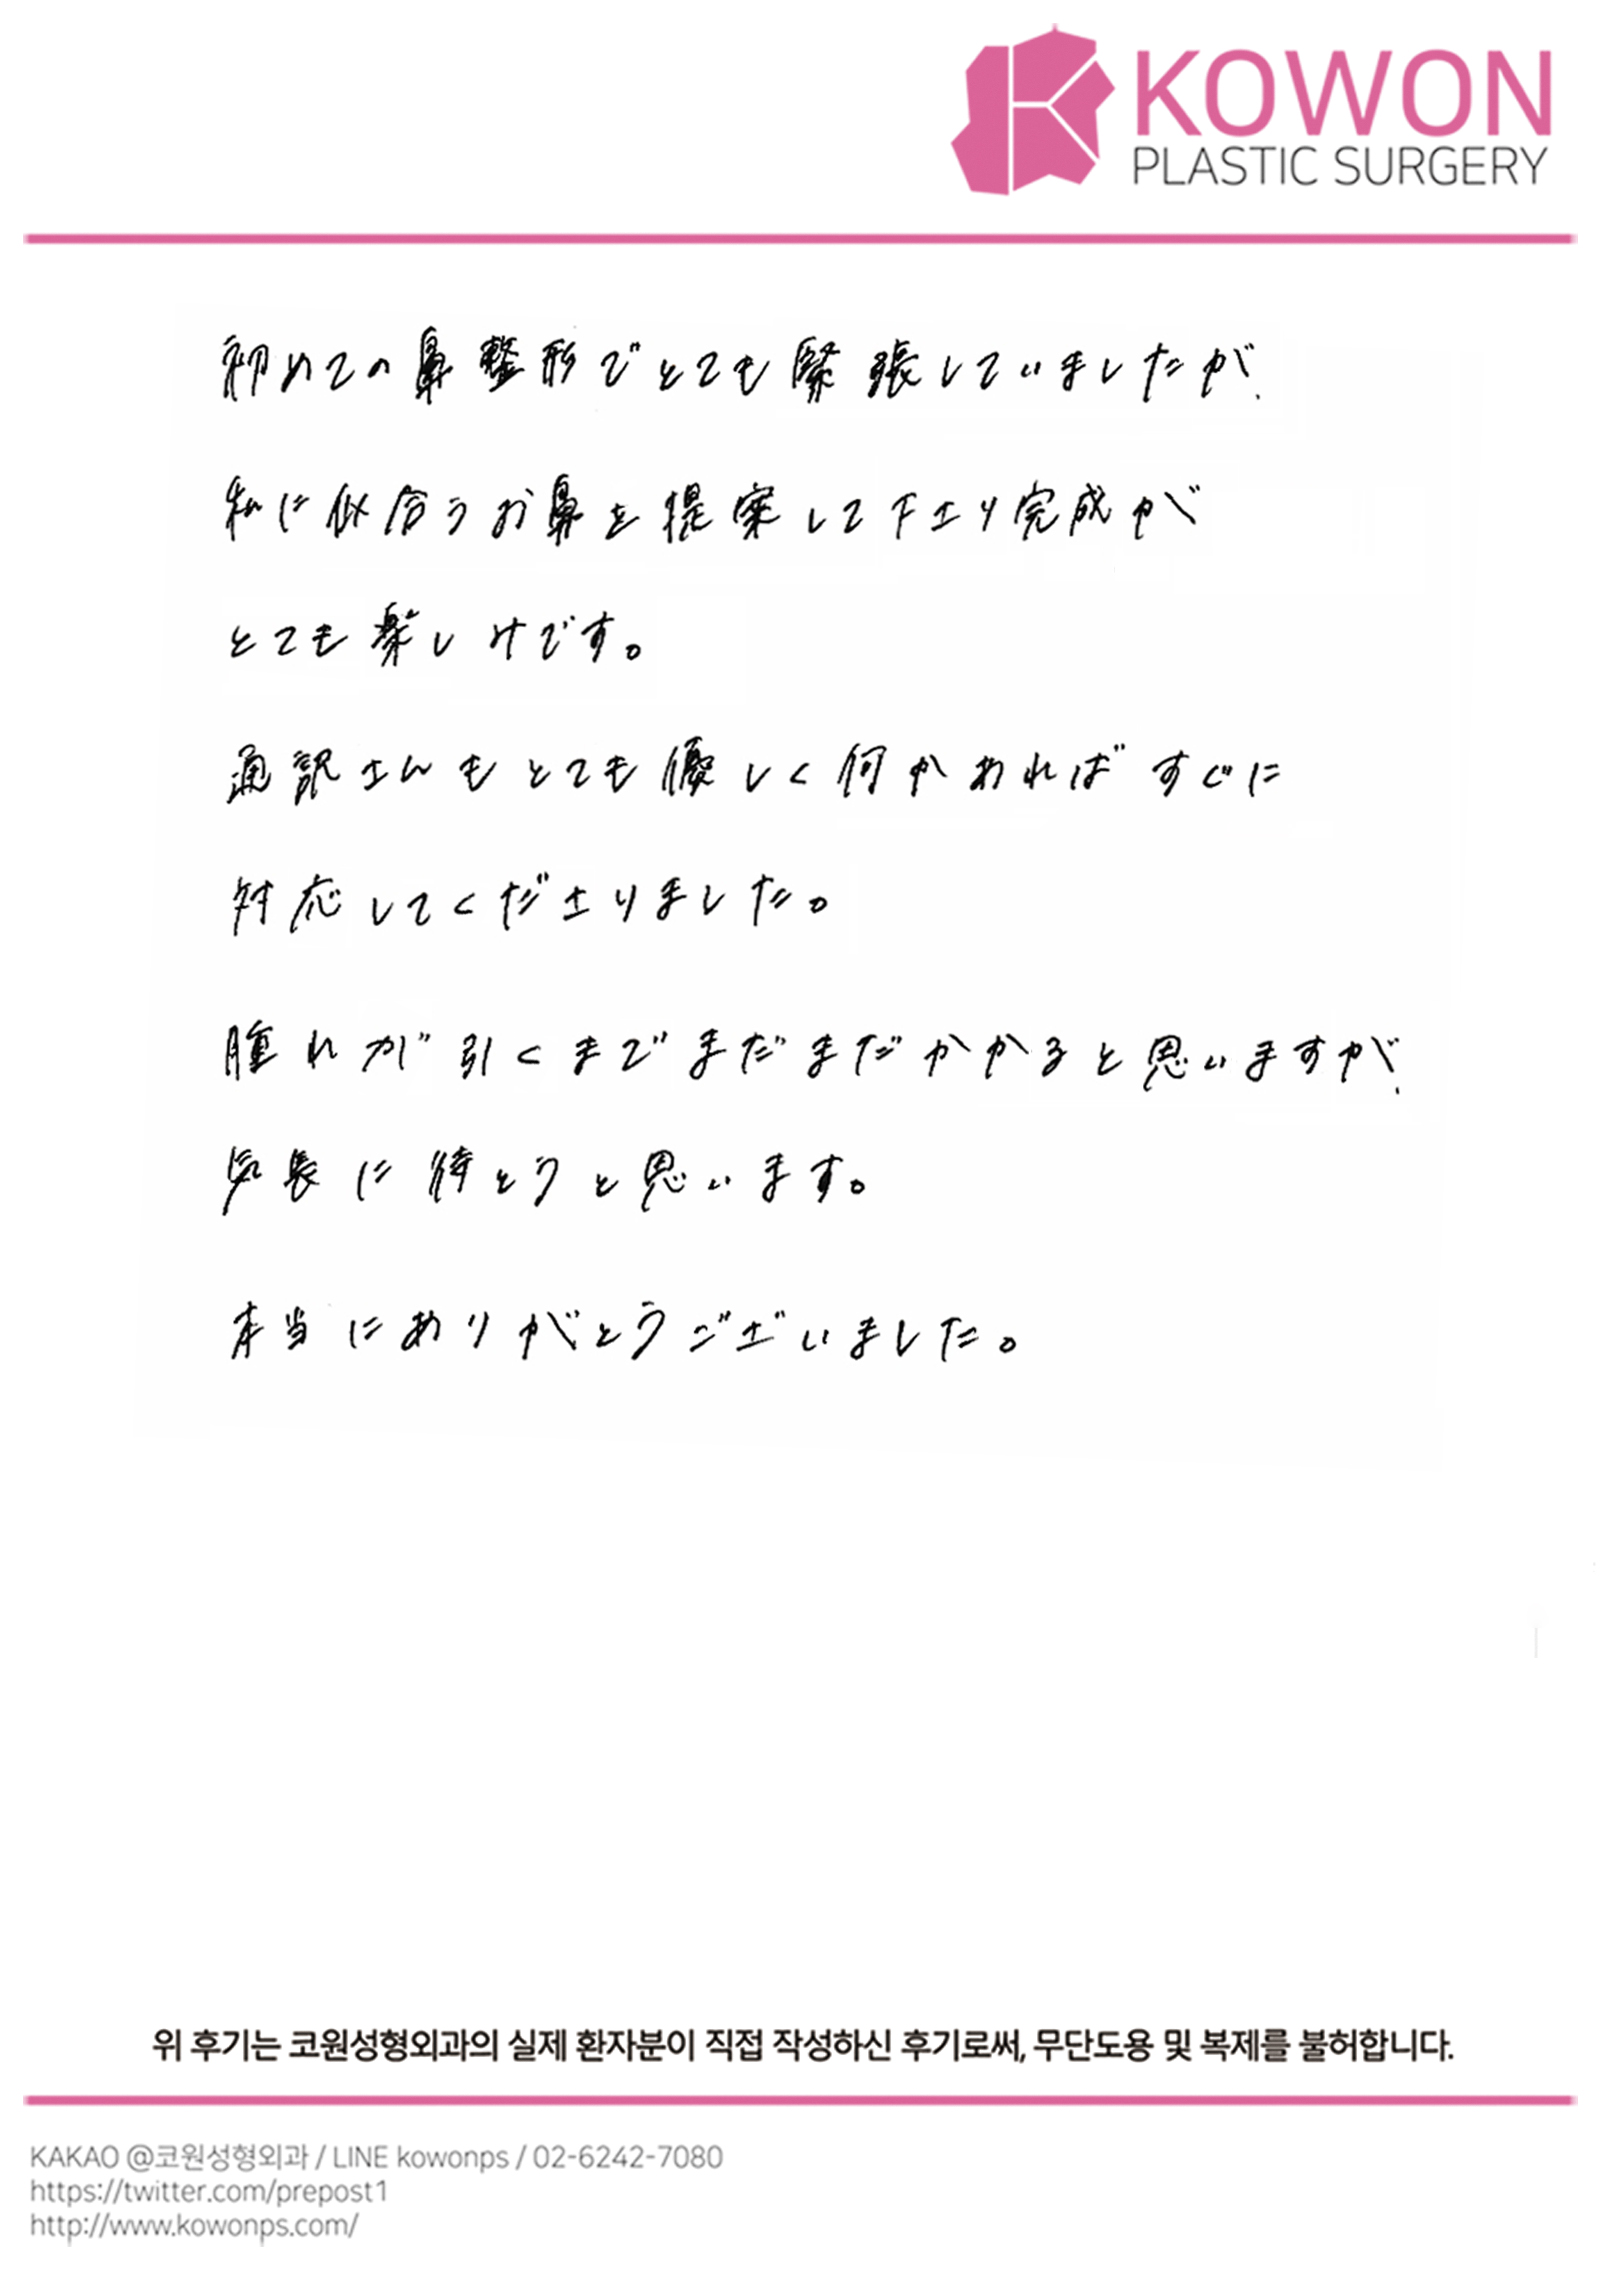 KOWON
PLASTIC SURGERY
初めての鼻整形でとても緊張していましたが、
私に似合うお鼻を提案して下さり完成が
とても楽しみです。
通訳さんもとても優しく何かあればすぐに
対応してくださりました。
腫れが引くまでまだまだかかると思いますが、
気長に待とうと思います。
本当にありがとうございました。
위 후기는 코원성형외과의 실제 환자분이 직접 작성하신 후기로써, 무단도용 및 복제를 불허합니다.
KAKAO @코원성형외과 / LINE kowonps / 02-6242-7080
https://twitter.com/prepost1
http://www.kowonps.com/